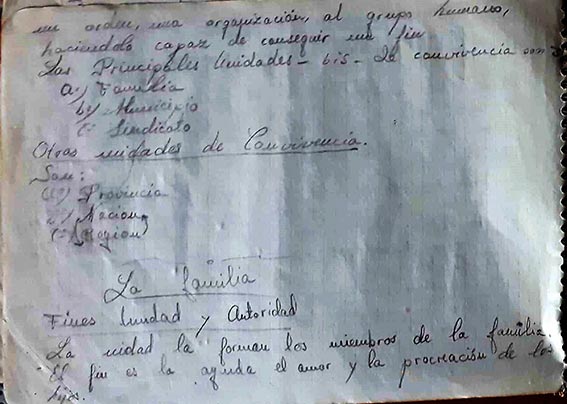 un orden, una organización, al grupo humano,
haciendolo capaz de conseguir un fin
Las Principales Unidades - bis - de convivencia son 3
a) Familia
b) Municipio
c) Sindicato
Otras unidades de Convivencia.
Son:
a) Provincia
b) Nacion
c) Region
La familia
Fines Unidad y Autoridad
La unidad la forman los miembros de la familia
El fin es la ayuda el amor y la procreación de los
hijos.